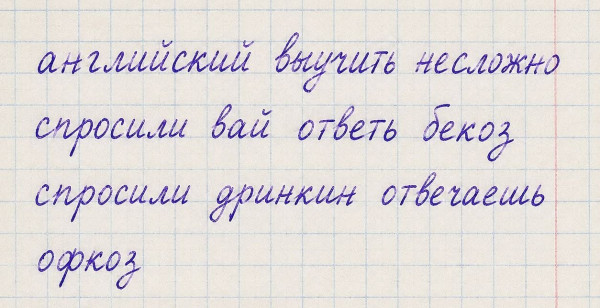 английский выучить несложно
спросили вай ответь бекоз
спросили дринкин отвечаешь
офкоз